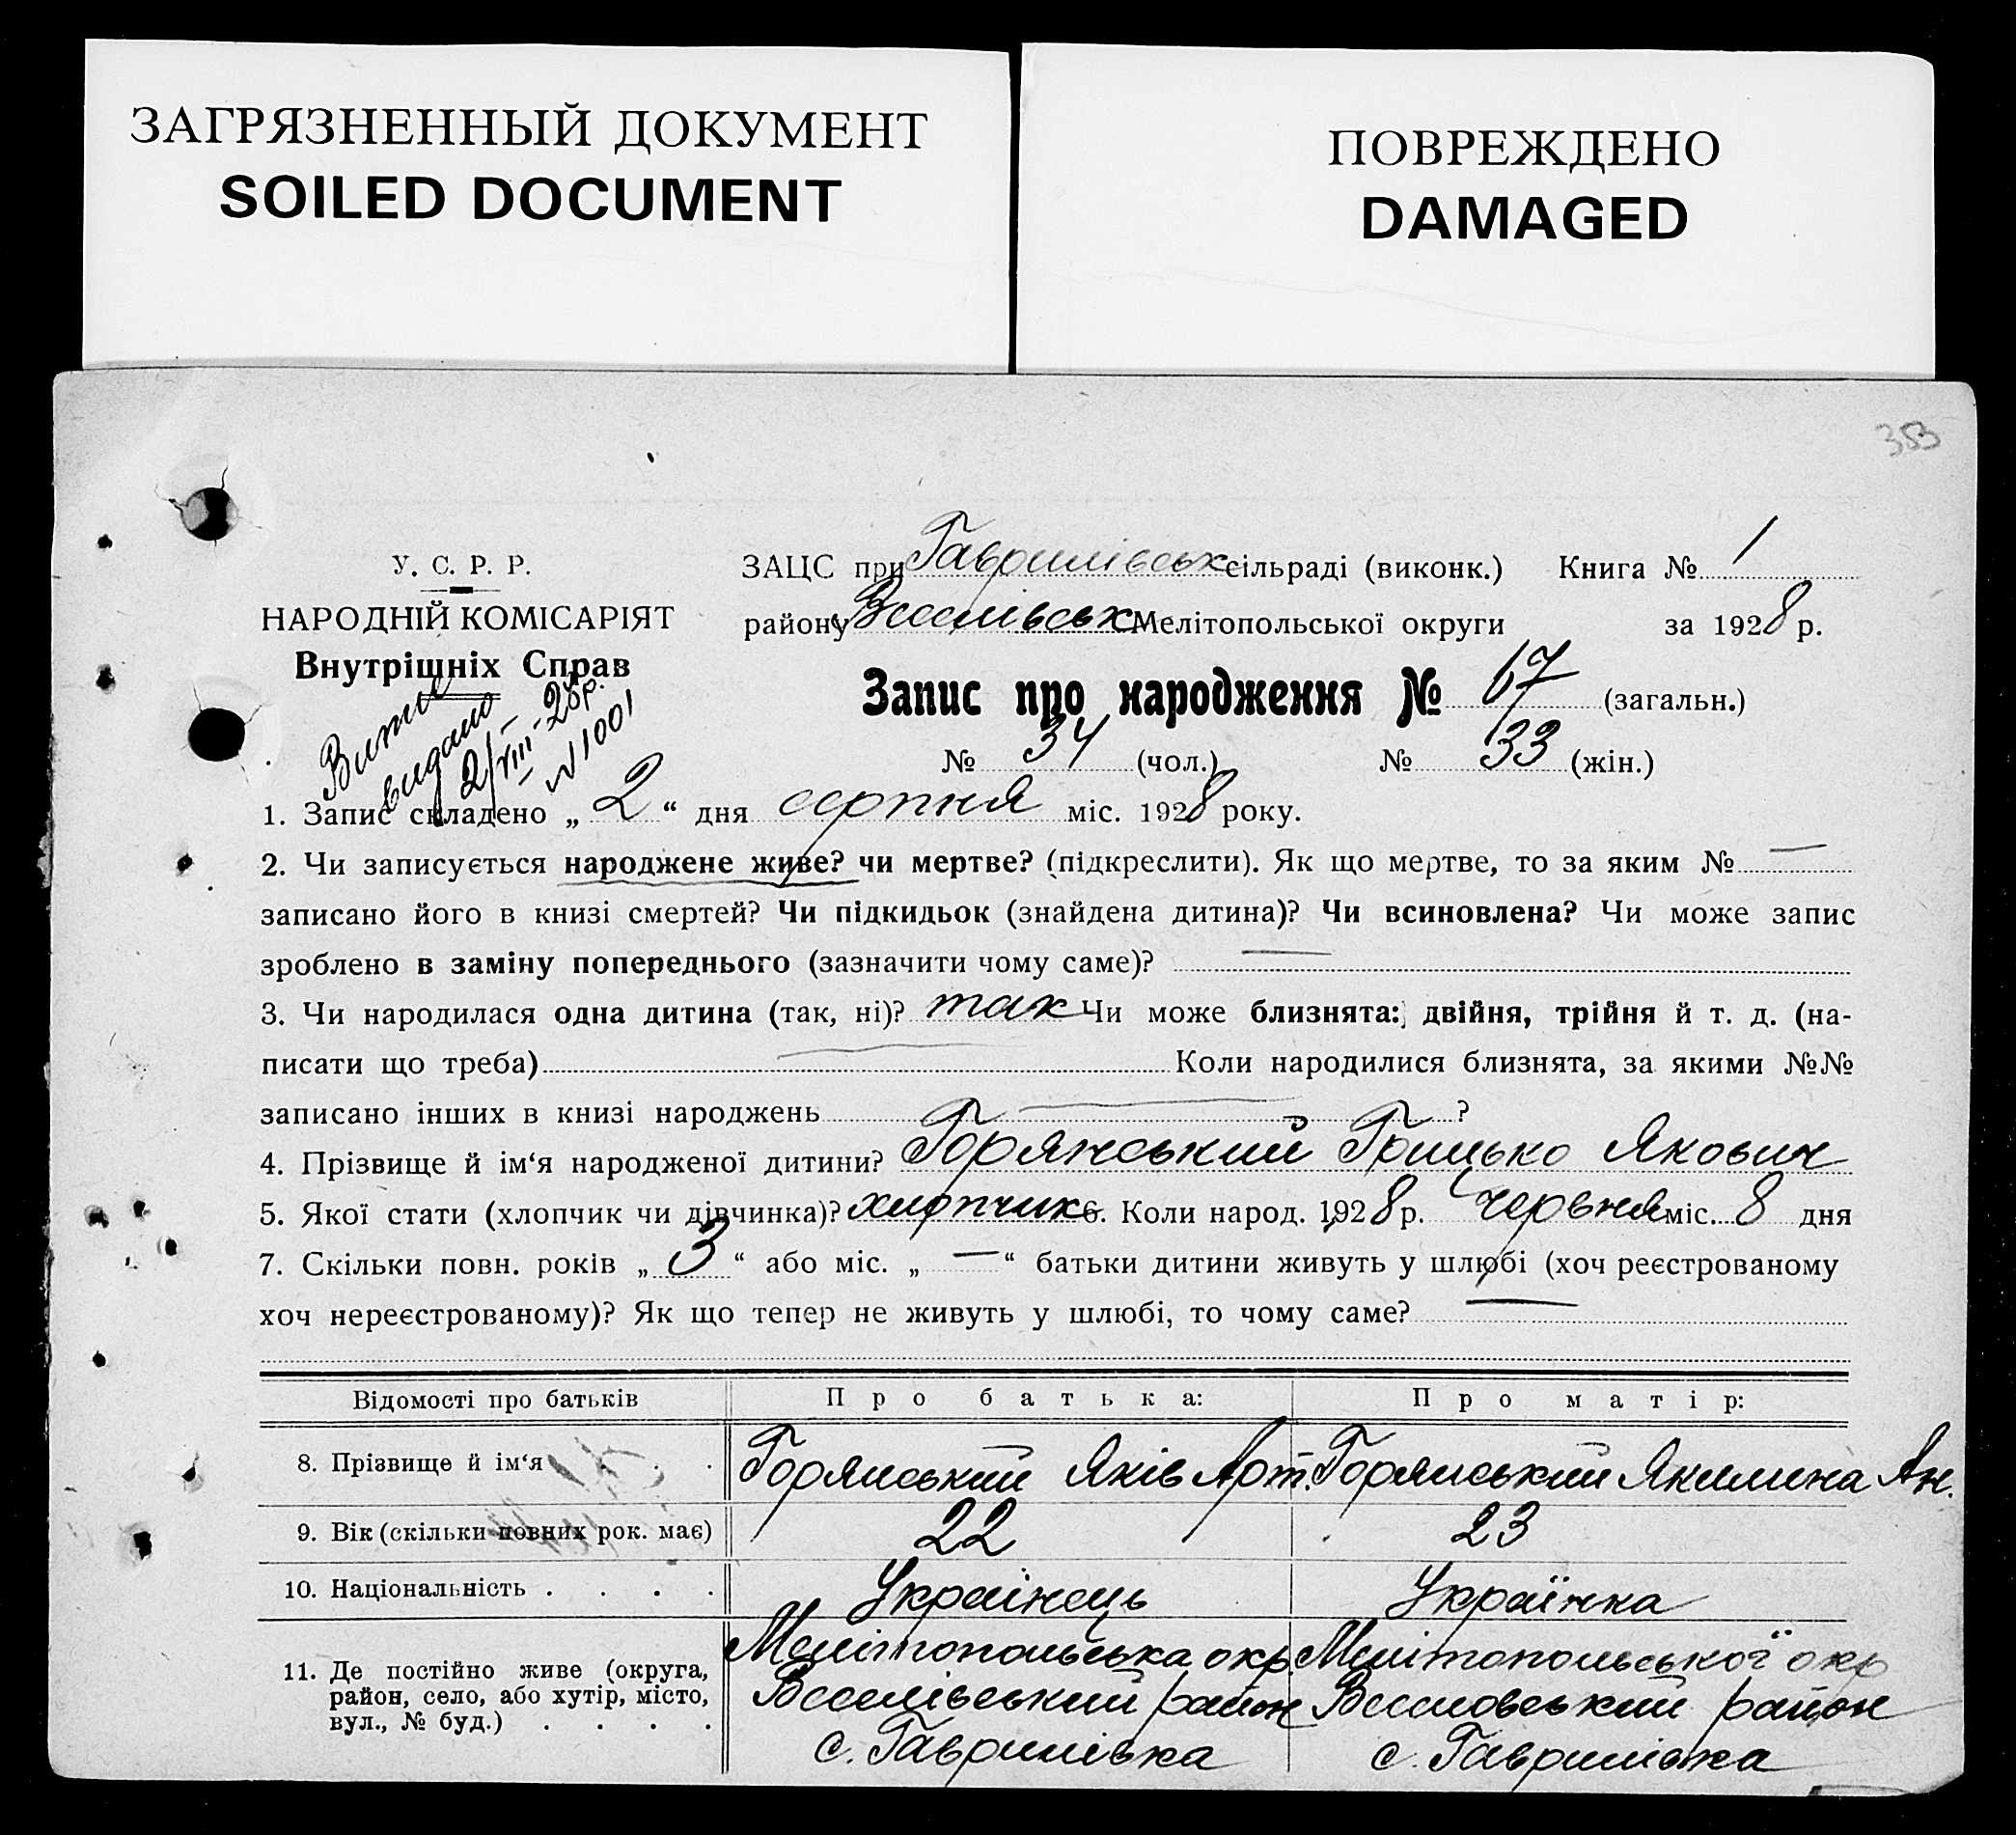 ЗАГРЯЗНЕННЫЙ ДОКУМЕНТ
SOILED DOCUMENT
ПОВРЕЖДЕНО
DAMAGED
353
У. С. Р. Р.
НАРОДНІЙ КОМІСАРІЯТ
Внутрішніх Справ
видано
2/VIII-28р.
№ 1001
ЗАЦС при Гаврилівськ сільраді (виконк.) Книга № 1
району Веселівськ Мелітопольської округи за 1928 р.
Запис про народження № 67 (загальн.)
№ 34 (чол.) № 33 (жін.)
1. Запис складено „ 2 “ дня серпня міс. 1928 року.
2. Чи записується народжене живе? чи мертве? (підкреслити). Як що мертве, то за яким № —
записано його в книзі смертей? Чи підкидьок (знайдена дитина)? Чи всиновлена? Чи може запис
зроблено в заміну попереднього (зазначити чому саме)? —
3. Чи народилася одна дитина (так, ні)? так Чи може близнята: двійня, трійня й т. д. (на-
писати що треба) — Коли народилися близнята, за якими №№
записано інших в книзі народжень — ?
4. Прізвище й ім‘я народженої дитини? Горянський Грицько Якович
5. Якої стати (хлопчик чи дівчинка)? хлопчик 6. Коли народ. 1928 р. червня міс. 8 дня
7. Скільки повн. років „ 3 “ або міс. „ — “ батьки дитини живуть у шлюбі (хоч реєстрованому
хоч нереєстрованому)? Як що тепер не живуть у шлюбі, то чому саме? —
Відомості про батьків Про батька: Про матір:
8. Прізвище й ім‘я . . Горянський Яків Арт. Горянський Якилина Ан.
9. Вік (скільки повних рок. має) 22 23
10. Національність . . . . Українець Українка
11. Де постійно живе (округа, район, село, або хутір, місто, вул., № буд.) . . . .
Мелітопольська окр. Мелітопольської окр
Веселівський район Веселовський район
с. Гаврилівка с. Гаврилівка